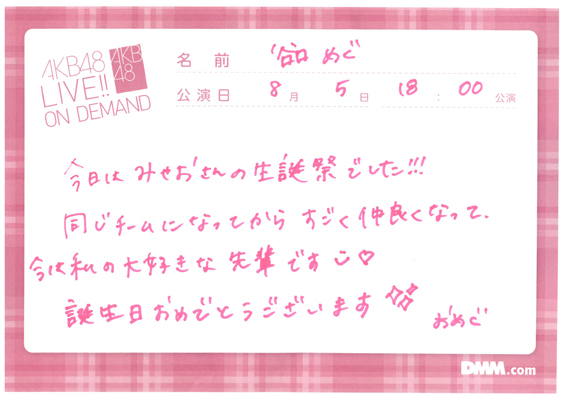 AKB48
LIVE!!
ON DEMAND
AKB
48
名前 谷口 めぐ
公演日 8月 5日 18:00 公演
今日は みせおさんの生誕祭でした!!!
同じチームになってから すごく仲良くなって、
今は私の大好きな 先輩です
誕生日おめでとうございます
おめぐ
DMM.com